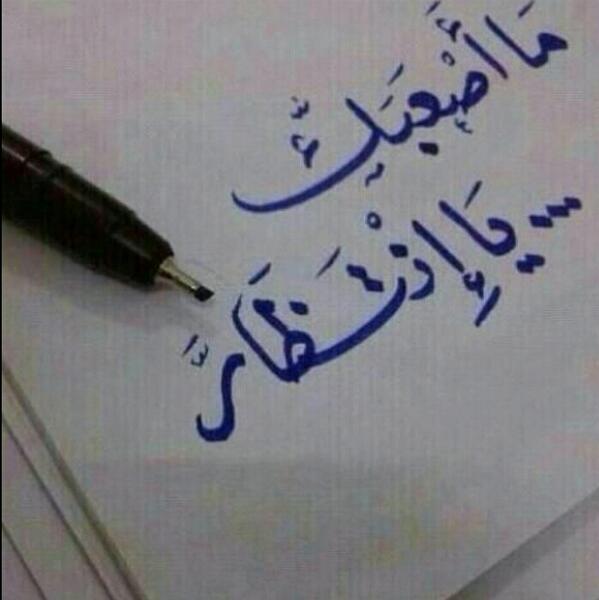 مَا أَصْعبَكَ
... يَا إِنْتَظَار